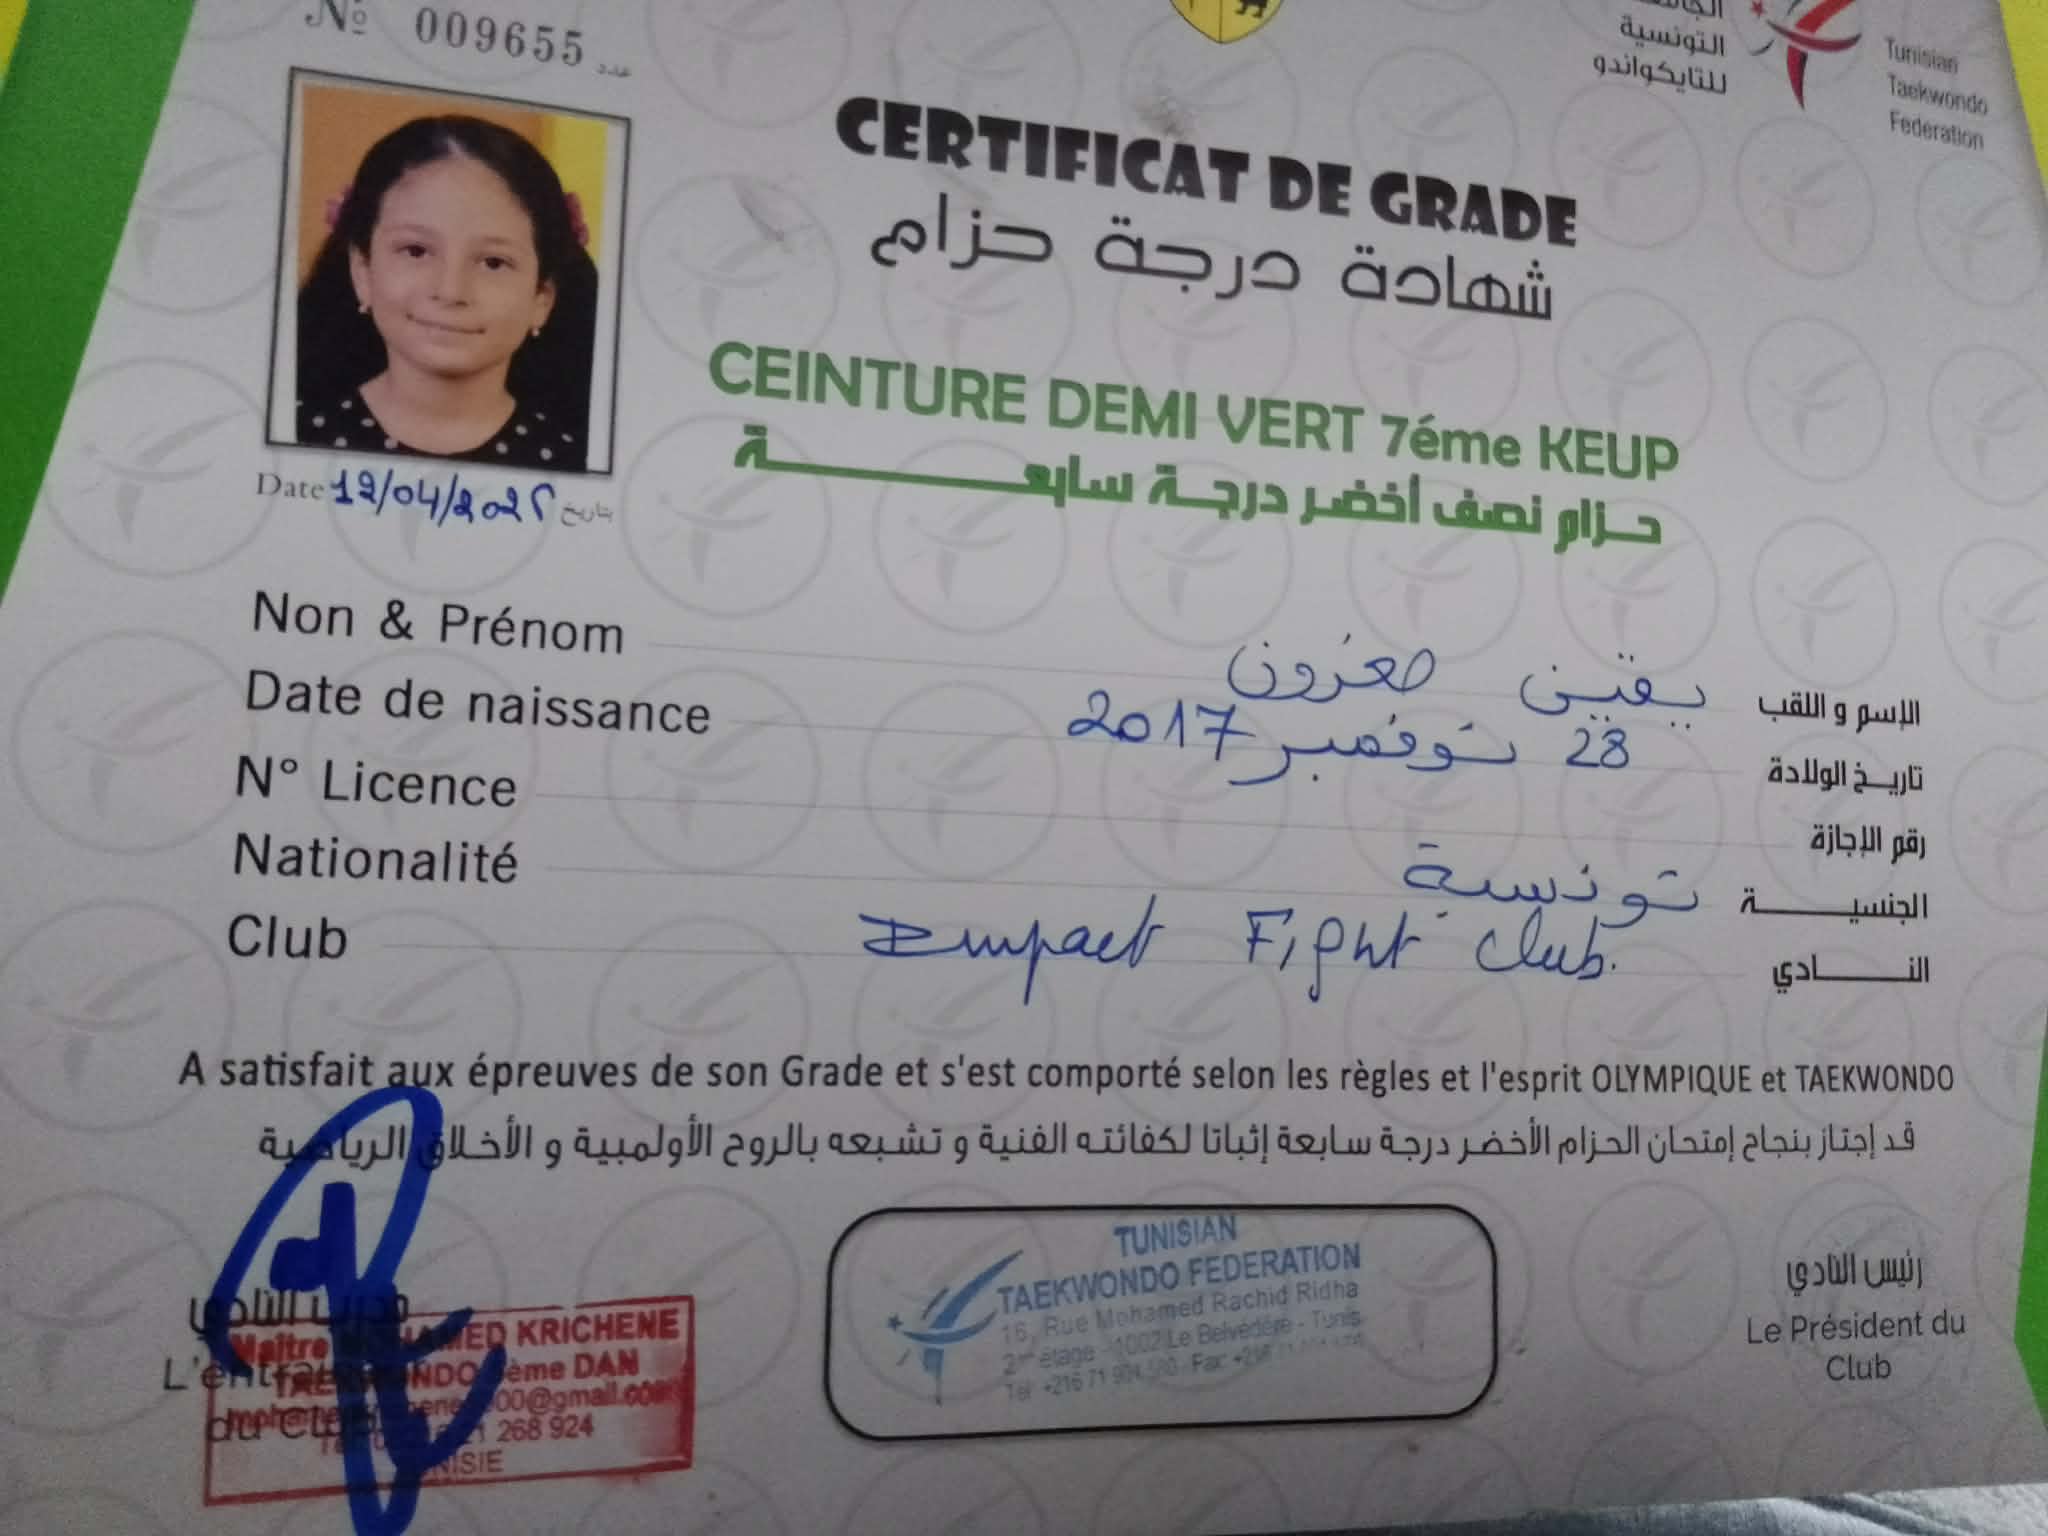 № 009655 عدد
الجامعة
التونسية
للتايكواندو
Tunisian
Taekwondo
Federation
CERTIFICAT DE GRADE
شهادة درجة حزام
CEINTURE DEMI VERT 7éme KEUP
حزام نصف أخضر درجة سابعة
Date 12/04/2025 بتاريخ
Non & Prénom يقين معزون الإسم و اللقب
Date de naissance 28 نوفمبر 2017 تاريخ الولادة
N° Licence رقم الإجازة
Nationalité تونسية الجنسية
Club Impact Fight Club. النادي
A satisfait aux épreuves de son Grade et s'est comporté selon les règles et l'esprit OLYMPIQUE et TAEKWONDO
قد إجتاز بنجاح إمتحان الحزام الأخضر درجة سابعة إثباتا لكفائته الفنية و تشبعه بالروح الأولمبية و الأخلاق الرياضية
مدرب النادي
L'entraineur
du Club
Maître MOHAMED KRICHENE
TAEKWONDO ème DAN
@gmail.com
268 924
TUNISIE
TUNISIAN
TAEKWONDO FEDERATION
16, Rue Mohamed Rachid Ridha
2ème étage - 1002 Le Belvédère - Tunis
Tel +216 71 904 Fax +216
رئيس النادي
Le Président du
Club